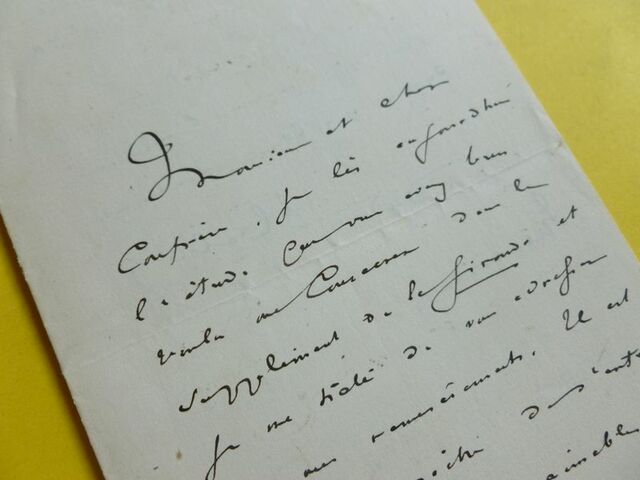 Monsieur et cher
Confrère, je lis aujourd'hui
l'étude que vous avez bien
voulu me consacrer dans le
supplément de la Gironde et
je me hâte de vous adresser
mes remerciements. Il est
d'ente
aimables